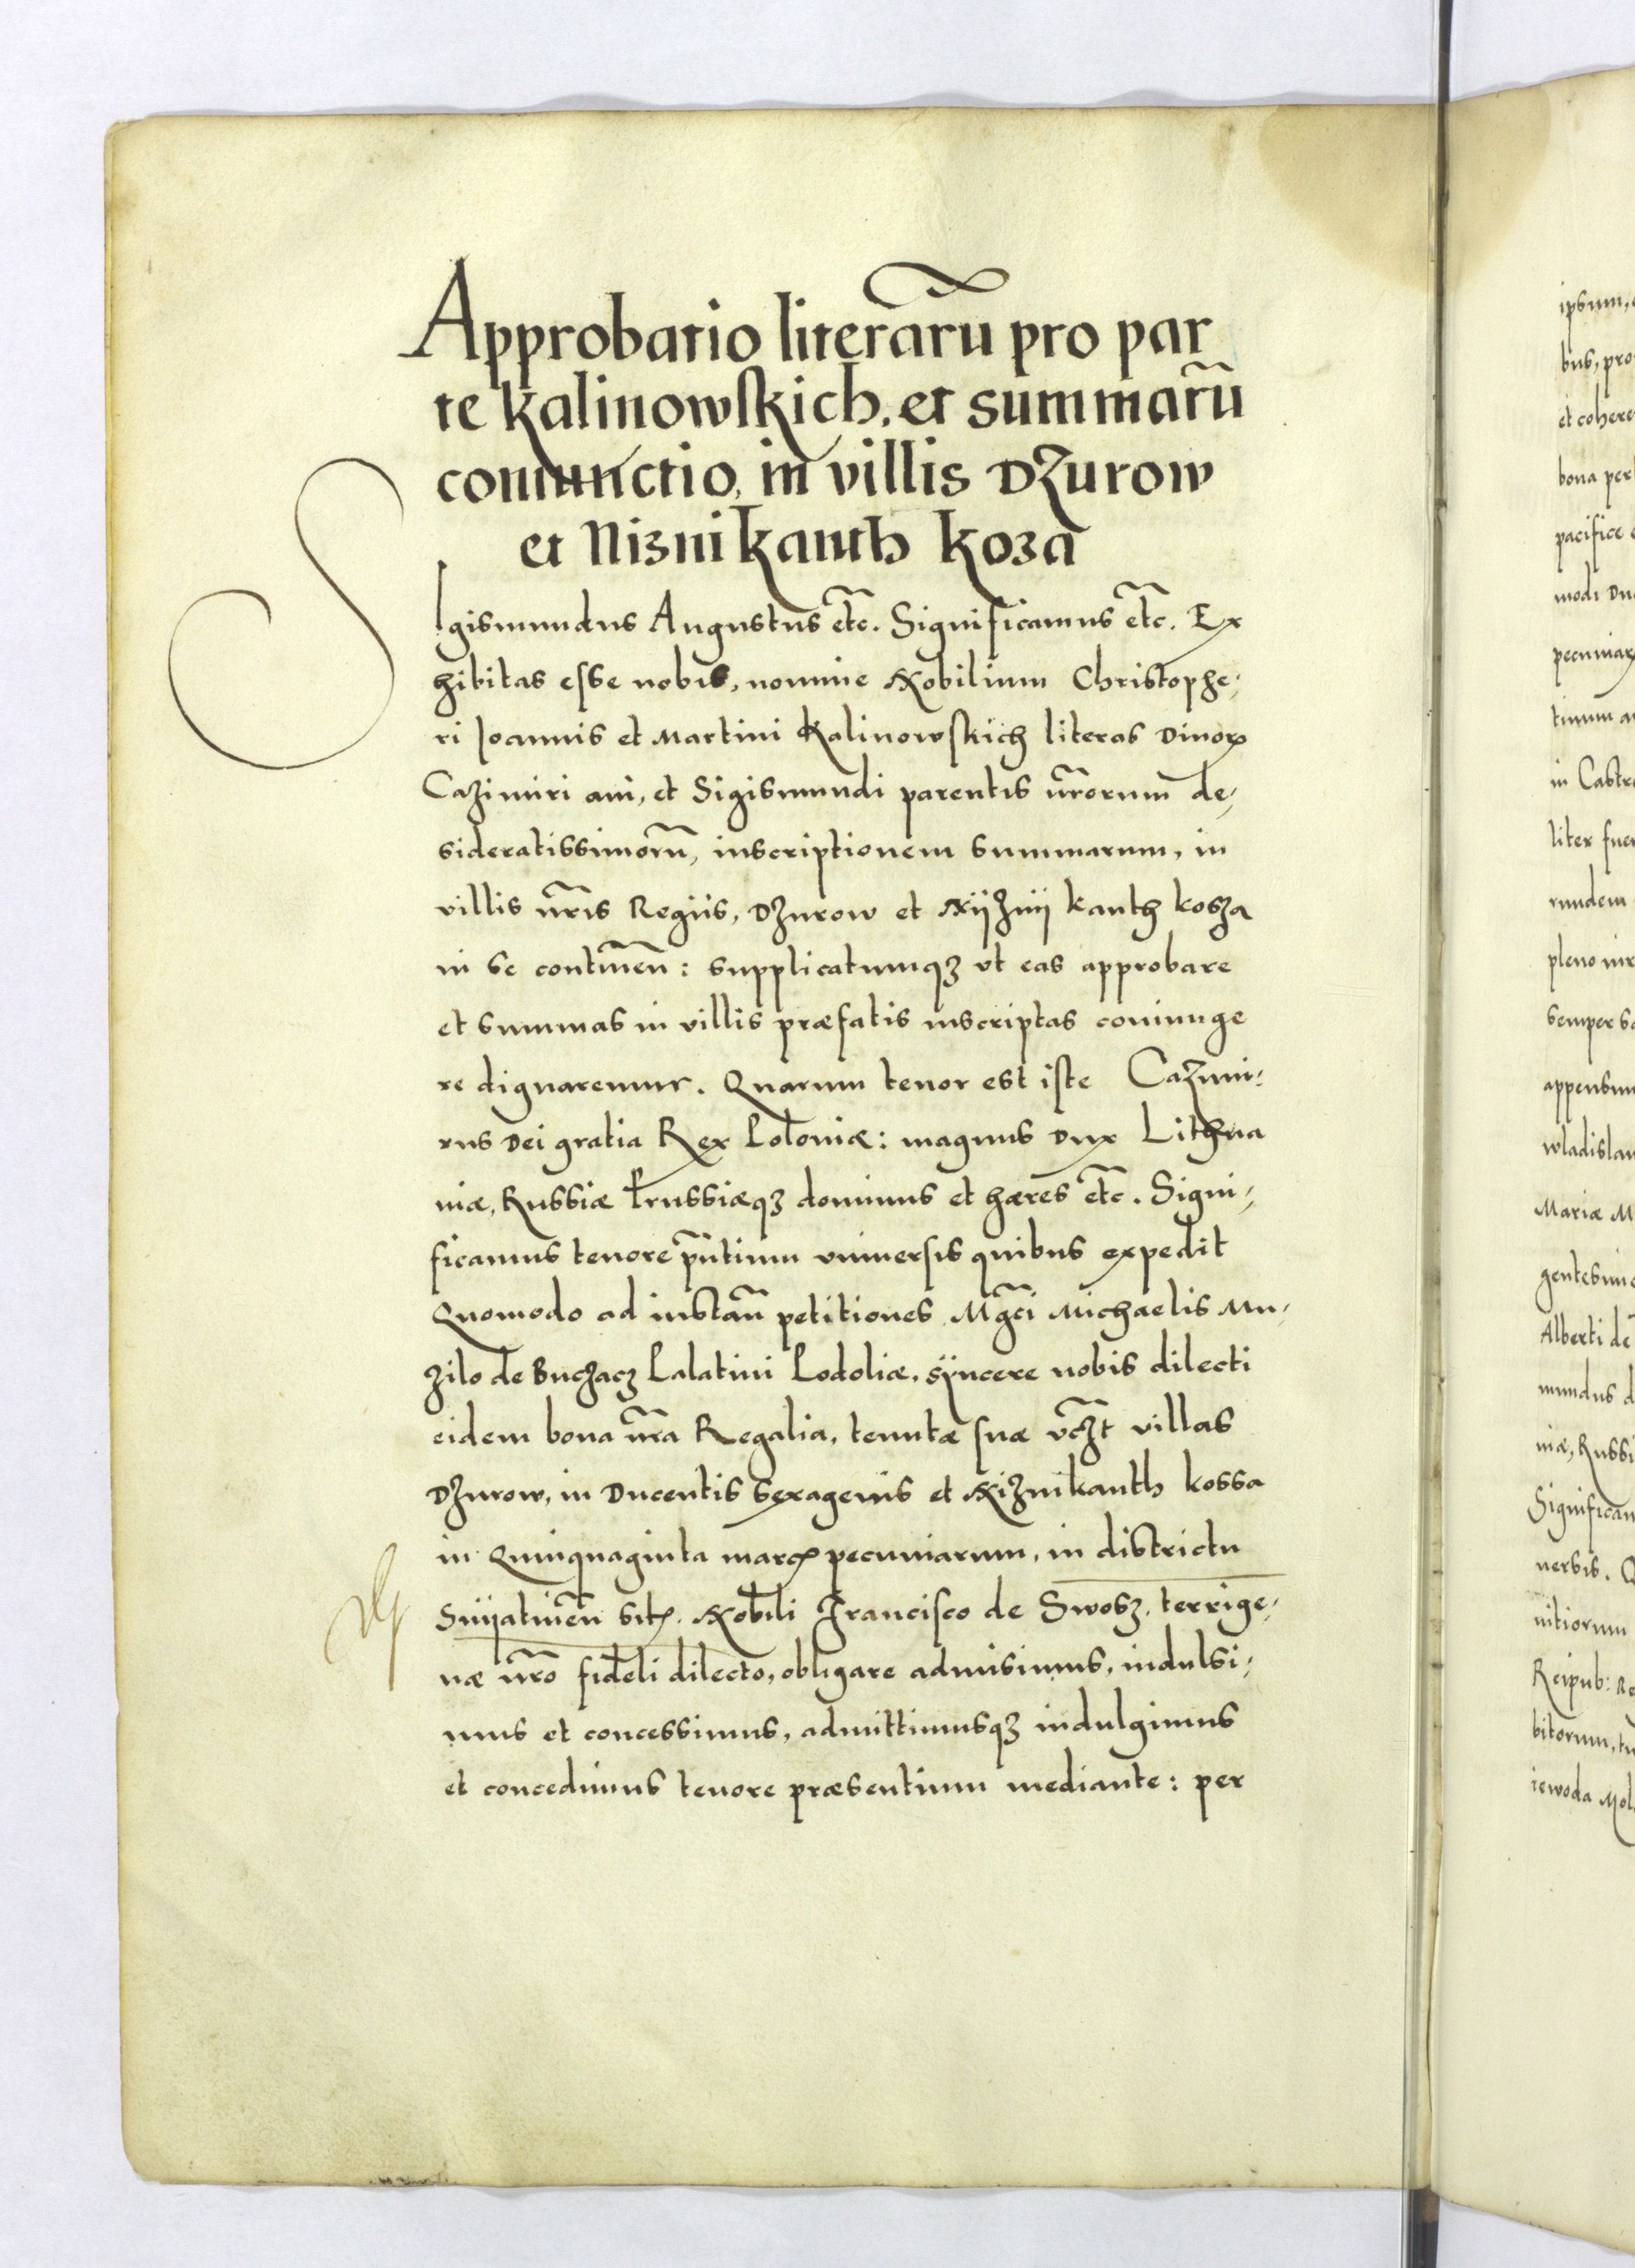 Approbatio literarũ pro par
te Kalinowskich, et summarũ
coniunctio, in villis Dzurow
et Niznikanth Koza
Sigismundus Augustus etc̃. Significamus etc̃. Ex
hibitas esse nobis, nomine Nobilium Christophe-
ri Joannis et Martini Kalinowskich literas Diuoꝝ
Cazimiri aui, et Sigismundi parentis nr̃orum de-
sideratissimorũ, inscriptionem summarum, in
villis nr̃is Regiis, Dzurow et Nijznij kanth kosza
in se contineñ: supplicatumqꝫ vt eas approbare
et summas in villis præfatis inscriptas coniunge
re dignaremur. Quarum tenor est iste Cazimi-
rus Dei gratia Rex Poloniæ: magnus Dux Lithua
niæ, Russiæ Prussiæqꝫ dominus et hæres etc̃. Signi-
ficamus tenore pñtium vniuersis quibus expedit
Quomodo ad instañ petitiones Mgc̃i Michaelis Mu-
zilo de Buczacz Palatini Podoliæ, sÿncere nobis dilecti
eidem bona nr̃a Regalia, tenutæ suæ vcz̃t villas
Dzurow, in Ducentis sexagenis et Niznikanth kossa
in Quinquaginta marcꝭ pecuniarum, in districtu
Snijatineñ sitꝭ. Nobili Francisco de Swosz, terrige-
næ nr̃o fideli dilecto, obligare admisimus, indulsi-
mus et concessimus, admittimusqꝫ indulgimus
et concedimus tenore præsentium mediante: per
ipsum,
bus, pro
et cohere
bona per
pacifice
modi Du
pecuniar
in Castr
liter fue
rundem
semper
appensum
wladislau
Mariæ M
Alberti de
mundus d
niæ, Russi
Significam
nersis.
nitiorum
Reipub: Re
bitorum,
iewoda Mol